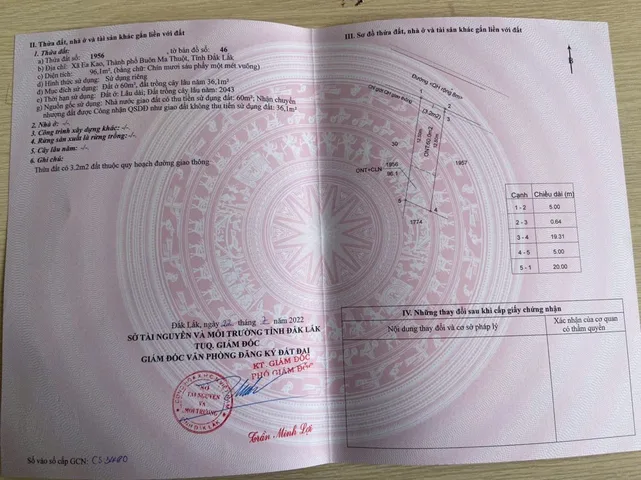 II. Thửa đất, nhà ở và tài sản khác gắn liền với đất
1. Thửa đất:
a) Thửa đất số: 1956 , tờ bản đồ số: 46
b) Địa chỉ: Xã Ea Kao, Thành phố Buôn Ma Thuột, Tỉnh Đắk Lắk
c) Diện tích: 96,1m², (bằng chữ: Chín mươi sáu phẩy một mét vuông)
d) Hình thức sử dụng: Sử dụng riêng
đ) Mục đích sử dụng: Đất ở 60m², đất trồng cây lâu năm 36,1m²
e) Thời hạn sử dụng: Đất ở: Lâu dài; Đất trồng cây lâu năm: 2043
g) Nguồn gốc sử dụng: Nhà nước giao đất có thu tiền sử dụng đất: 60m²; Nhận chuyển
nhượng đất được Công nhận QSDĐ như giao đất không thu tiền sử dụng đất: 36,1m²
2. Nhà ở: -/-
3. Công trình xây dựng khác: -/-
4. Rừng sản xuất là rừng trồng: -/-
5. Cây lâu năm: -/-
6. Ghi chú:
Thửa đất có 3.2m2 đất thuộc quy hoạch đường giao thông
Đắk Lắk, ngày tháng năm 2022
SỞ TÀI NGUYÊN VÀ MÔI TRƯỜNG TỈNH ĐẮK LẮK
TUQ. GIÁM ĐỐC
GIÁM ĐỐC VĂN PHÒNG ĐĂNG KÝ ĐẤT ĐAI
KT. GIÁM ĐỐC
PHÓ GIÁM ĐỐC
SỞ
TÀI NGUYÊN
VÀ
MÔI TRƯỜNG
TỈNH ĐẮK LẮK
Trần Minh Lợi
Số vào sổ cấp GCN:
III. Sơ đồ thửa đất, nhà ở và tài sản khác gắn liền với đất
B
(3.2m2)
1
2
3
ONT:60.0m2
1956
96.1
ONT+CLN
1957
5
4
1774
Cạnh Chiều dài (m)
1 - 2 5.00
2 - 3 0.64
3 - 4 19.31
4 - 5 5.00
5 - 1 20.00
IV. Những thay đổi sau khi cấp giấy chứng nhận
Nội dung thay đổi và cơ sở pháp lý
Xác nhận của cơ quan
có thẩm quyền